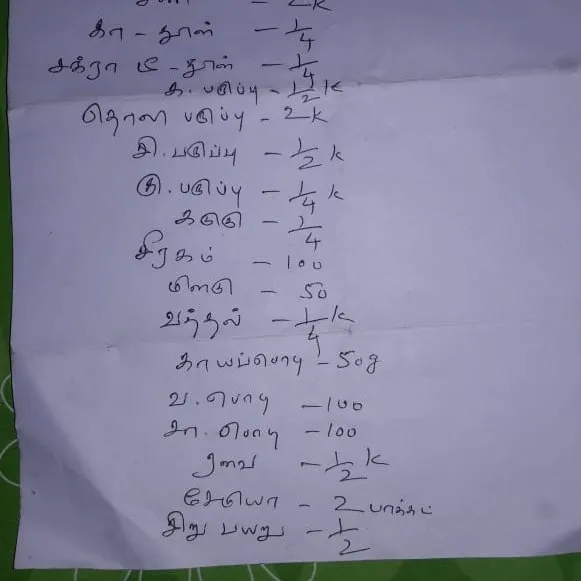 சீனி - 2k
கா - தூள் - 1/4
சக்ரா டீ - தூள் - 1/4
க. பருப்பு - 1/2 k
தொலி பருப்பு - 2k
சி. பருப்பு - 1/2 k
து. பருப்பு - 1/4 k
கடுகு - 1/4
சீரகம் - 100
மிளகு - 50
வத்தல் - 1/4 k
காயப்பொடி - 50g
வ. பொடி - 100
சா. பொடி - 100
ரவை - 1/2 k
சேமியா - 2 பாக்கட்
சிறு பயறு - 1/2